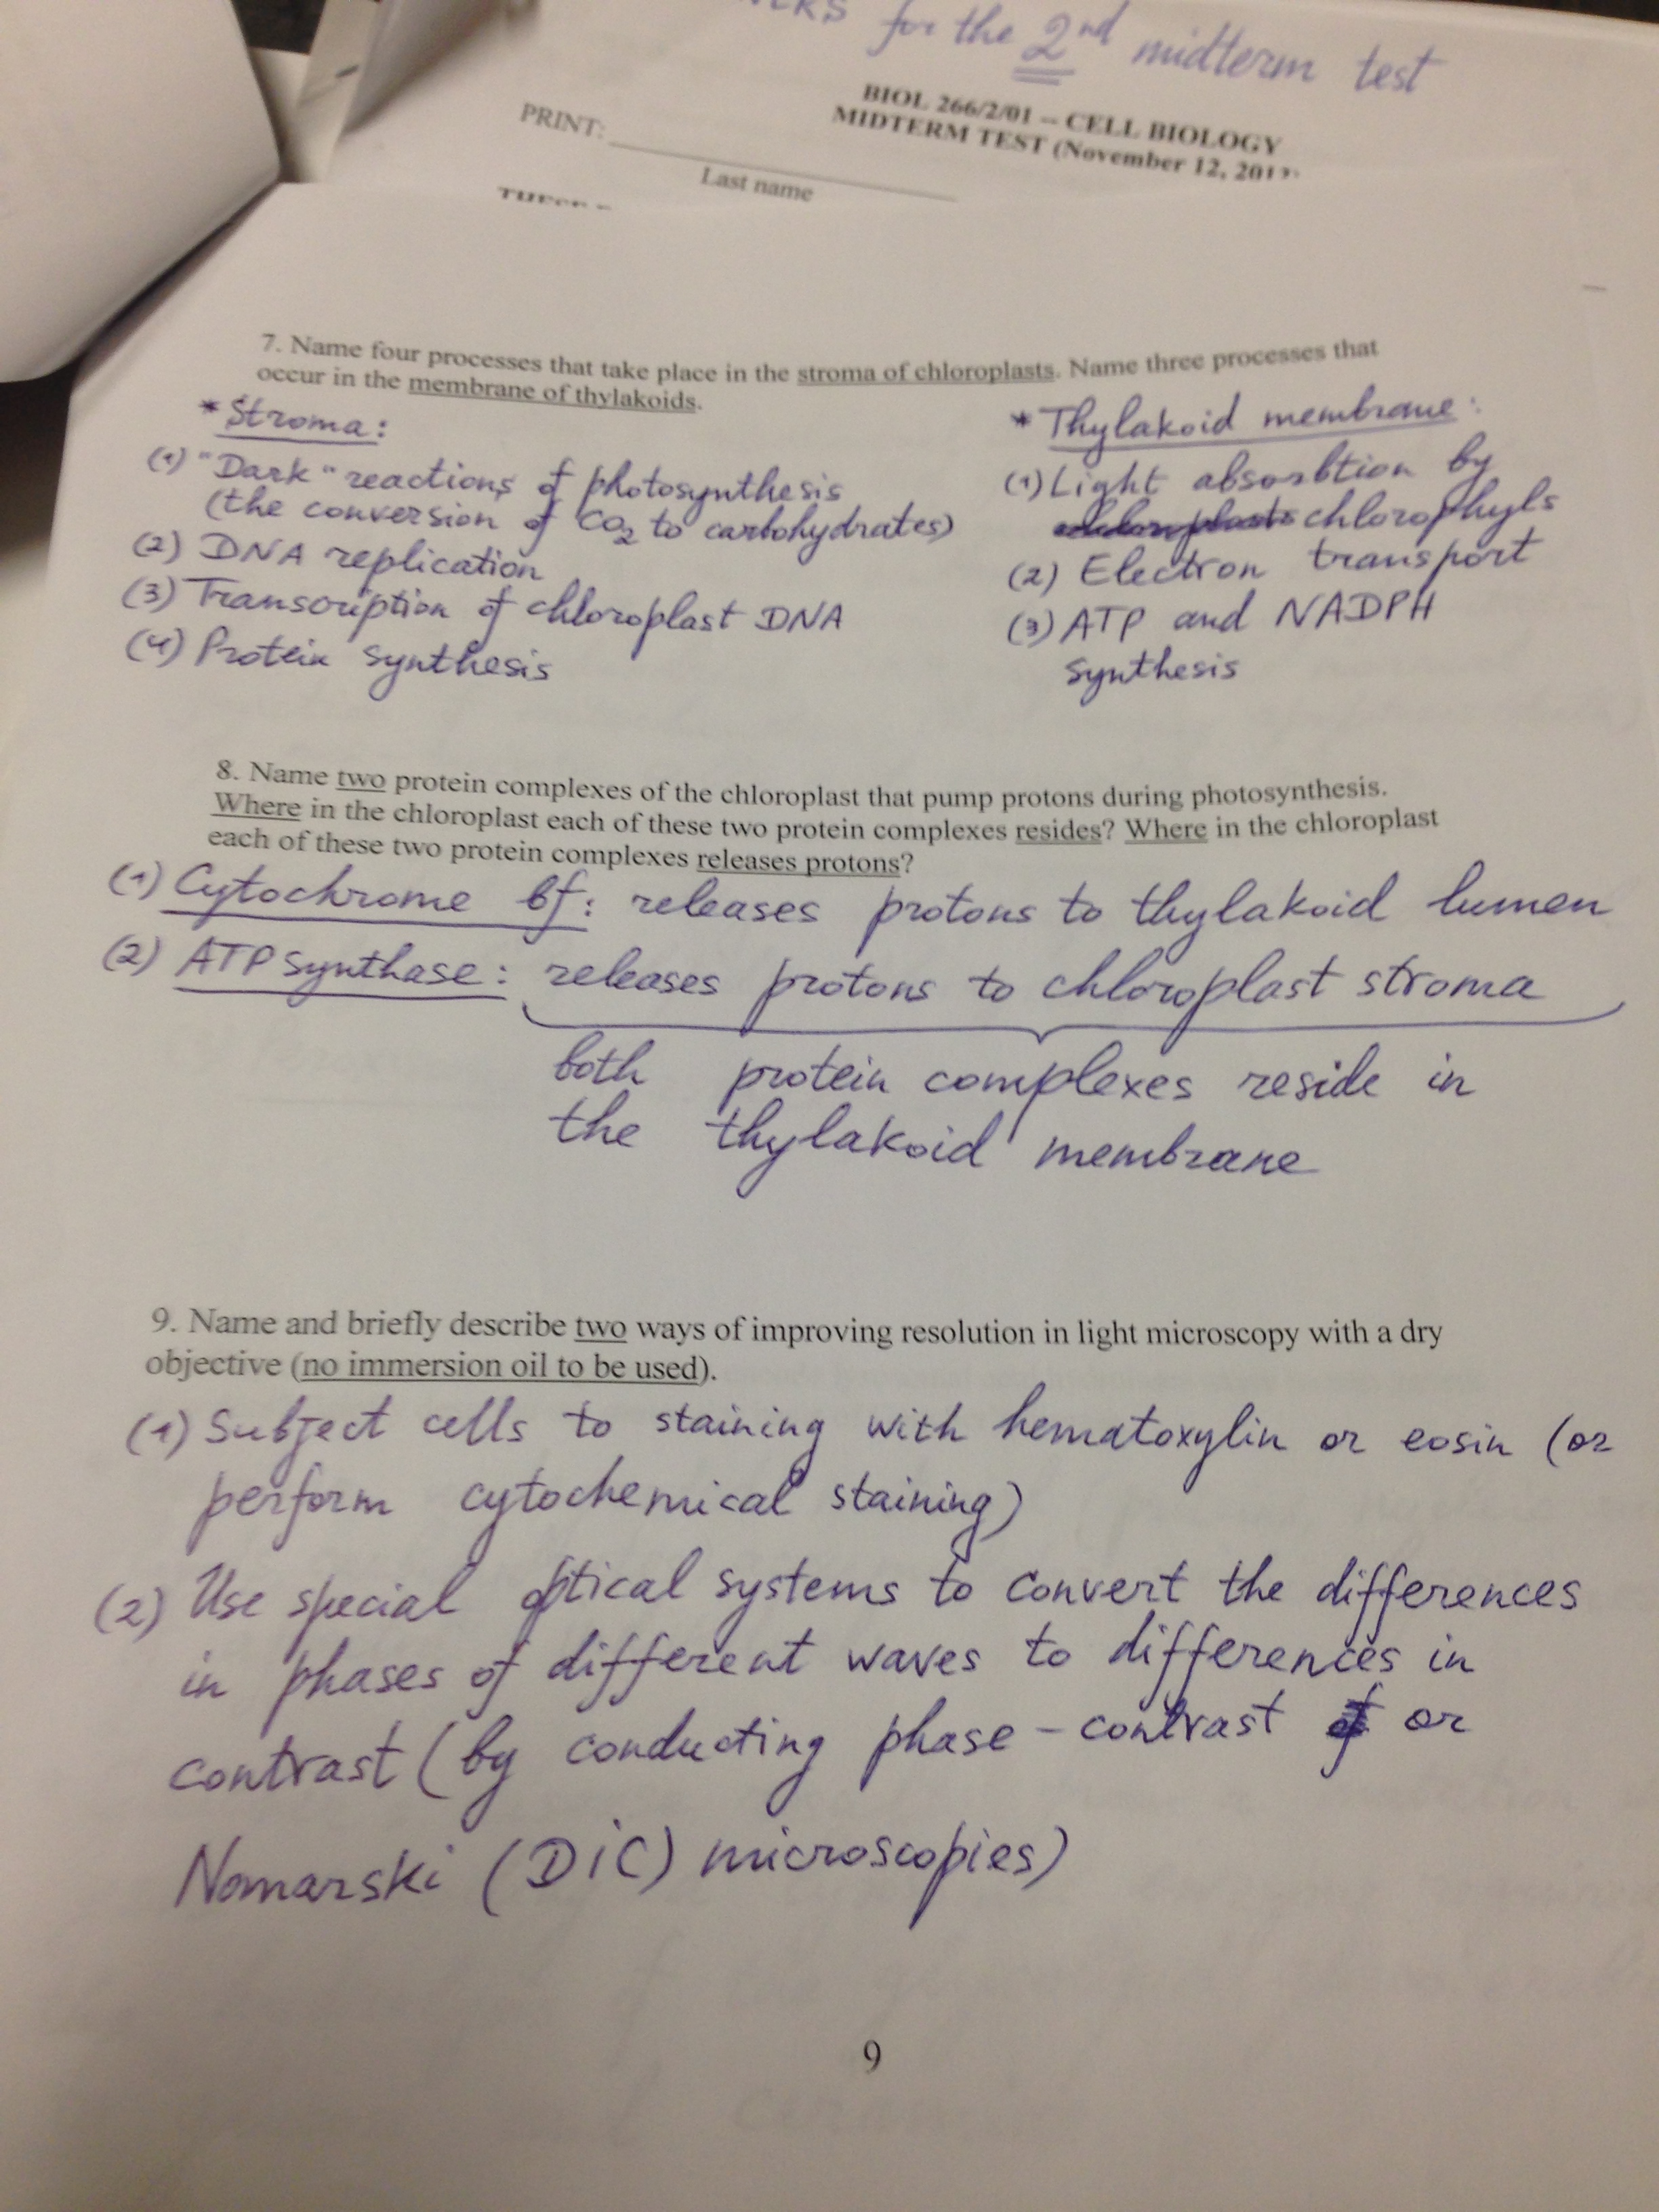 for the 2nd midterm test
BIOL 266/2/01 – CELL BIOLOGY
MIDTERM TEST (November 12, 201
PRINT:
Last name
7. Name four processes that take place in the stroma of chloroplasts. Name three processes that
occur in the membrane of thylakoids.
* Stroma:
(1) "Dark" reactions of photosynthesis
(the conversion of CO2 to carbohydrates)
(2) DNA replication
(3) Transcription of chloroplast DNA
(4) Protein synthesis
* Thylakoid membrane:
(1) Light absorbtion by
chlorophyls
(2) Electron transport
(3) ATP and NADPH
synthesis
8. Name two protein complexes of the chloroplast that pump protons during photosynthesis.
Where in the chloroplast each of these two protein complexes resides? Where in the chloroplast
each of these two protein complexes releases protons?
(1) Cytochrome bf: releases protons to thylakoid lumen
(2) ATP synthase: releases protons to chloroplast stroma
both protein complexes reside in
the thylakoid membrane
9. Name and briefly describe two ways of improving resolution in light microscopy with a dry
objective (no immersion oil to be used).
(1) Subject cells to staining with hematoxylin or eosin (or
perform cytochemical staining)
(2) Use special optical systems to convert the differences
in phases of different waves to differences in
contrast (by conducting phase-contrast or
Nomarski (DIC) microscopies)
9